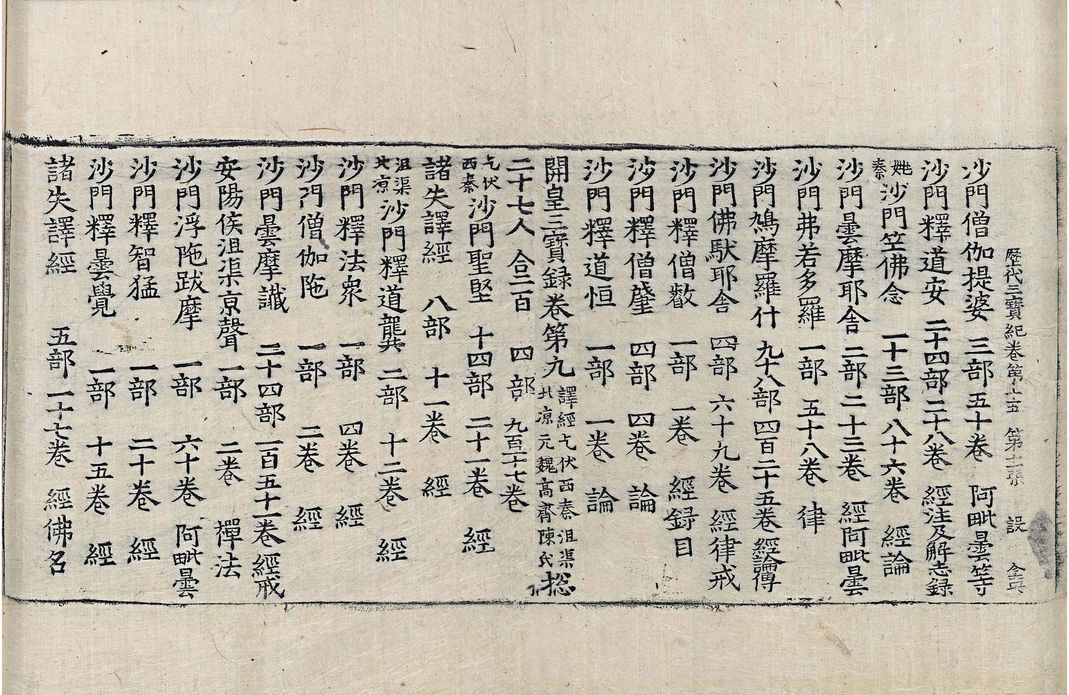 歷代三寶紀卷第十五 第十張 設
沙門僧伽提婆 三部五十卷 阿毗曇等
沙門釋道安 二十四部二十八卷 經注及解志錄
姚秦沙門竺佛念 一十三部八十六卷 經論
沙門曇摩耶舍 二部二十三卷 經阿毗曇
沙門弗若多羅 一部 五十八卷 律
沙門鳩摩羅什 九十八部四百二十五卷經論傳
沙門佛馱耶舍 四部 六十九卷 經律戒
沙門釋僧叡 一部 一卷 經録目
沙門釋僧肇 四部 四卷 論
沙門釋道恒 一部 一卷 論
開皇三寶録卷第九 譯經乞伏西秦沮渠北涼元魏高齊陳氏 惣
二十七人 合二百 四部 九百十七卷
乞伏西秦沙門聖堅 十四部 二十一卷 經
諸失譯經 八部 十一卷 經
沮渠北涼沙門釋道龔 二部 十二卷 經
沙門釋法衆 一部 四卷 經
沙門僧伽陁 一部 二卷 經
沙門曇摩讖 二十四部 一百五十一卷 經戒
安陽侯沮渠京聲 一部 二卷 禪法
沙門浮陁跋摩 一部 六十卷 阿毗曇
沙門釋智猛 一部 二十卷 經
沙門釋曇覺 一部 十五卷 經
諸失譯經 五部 一十七卷 經佛名